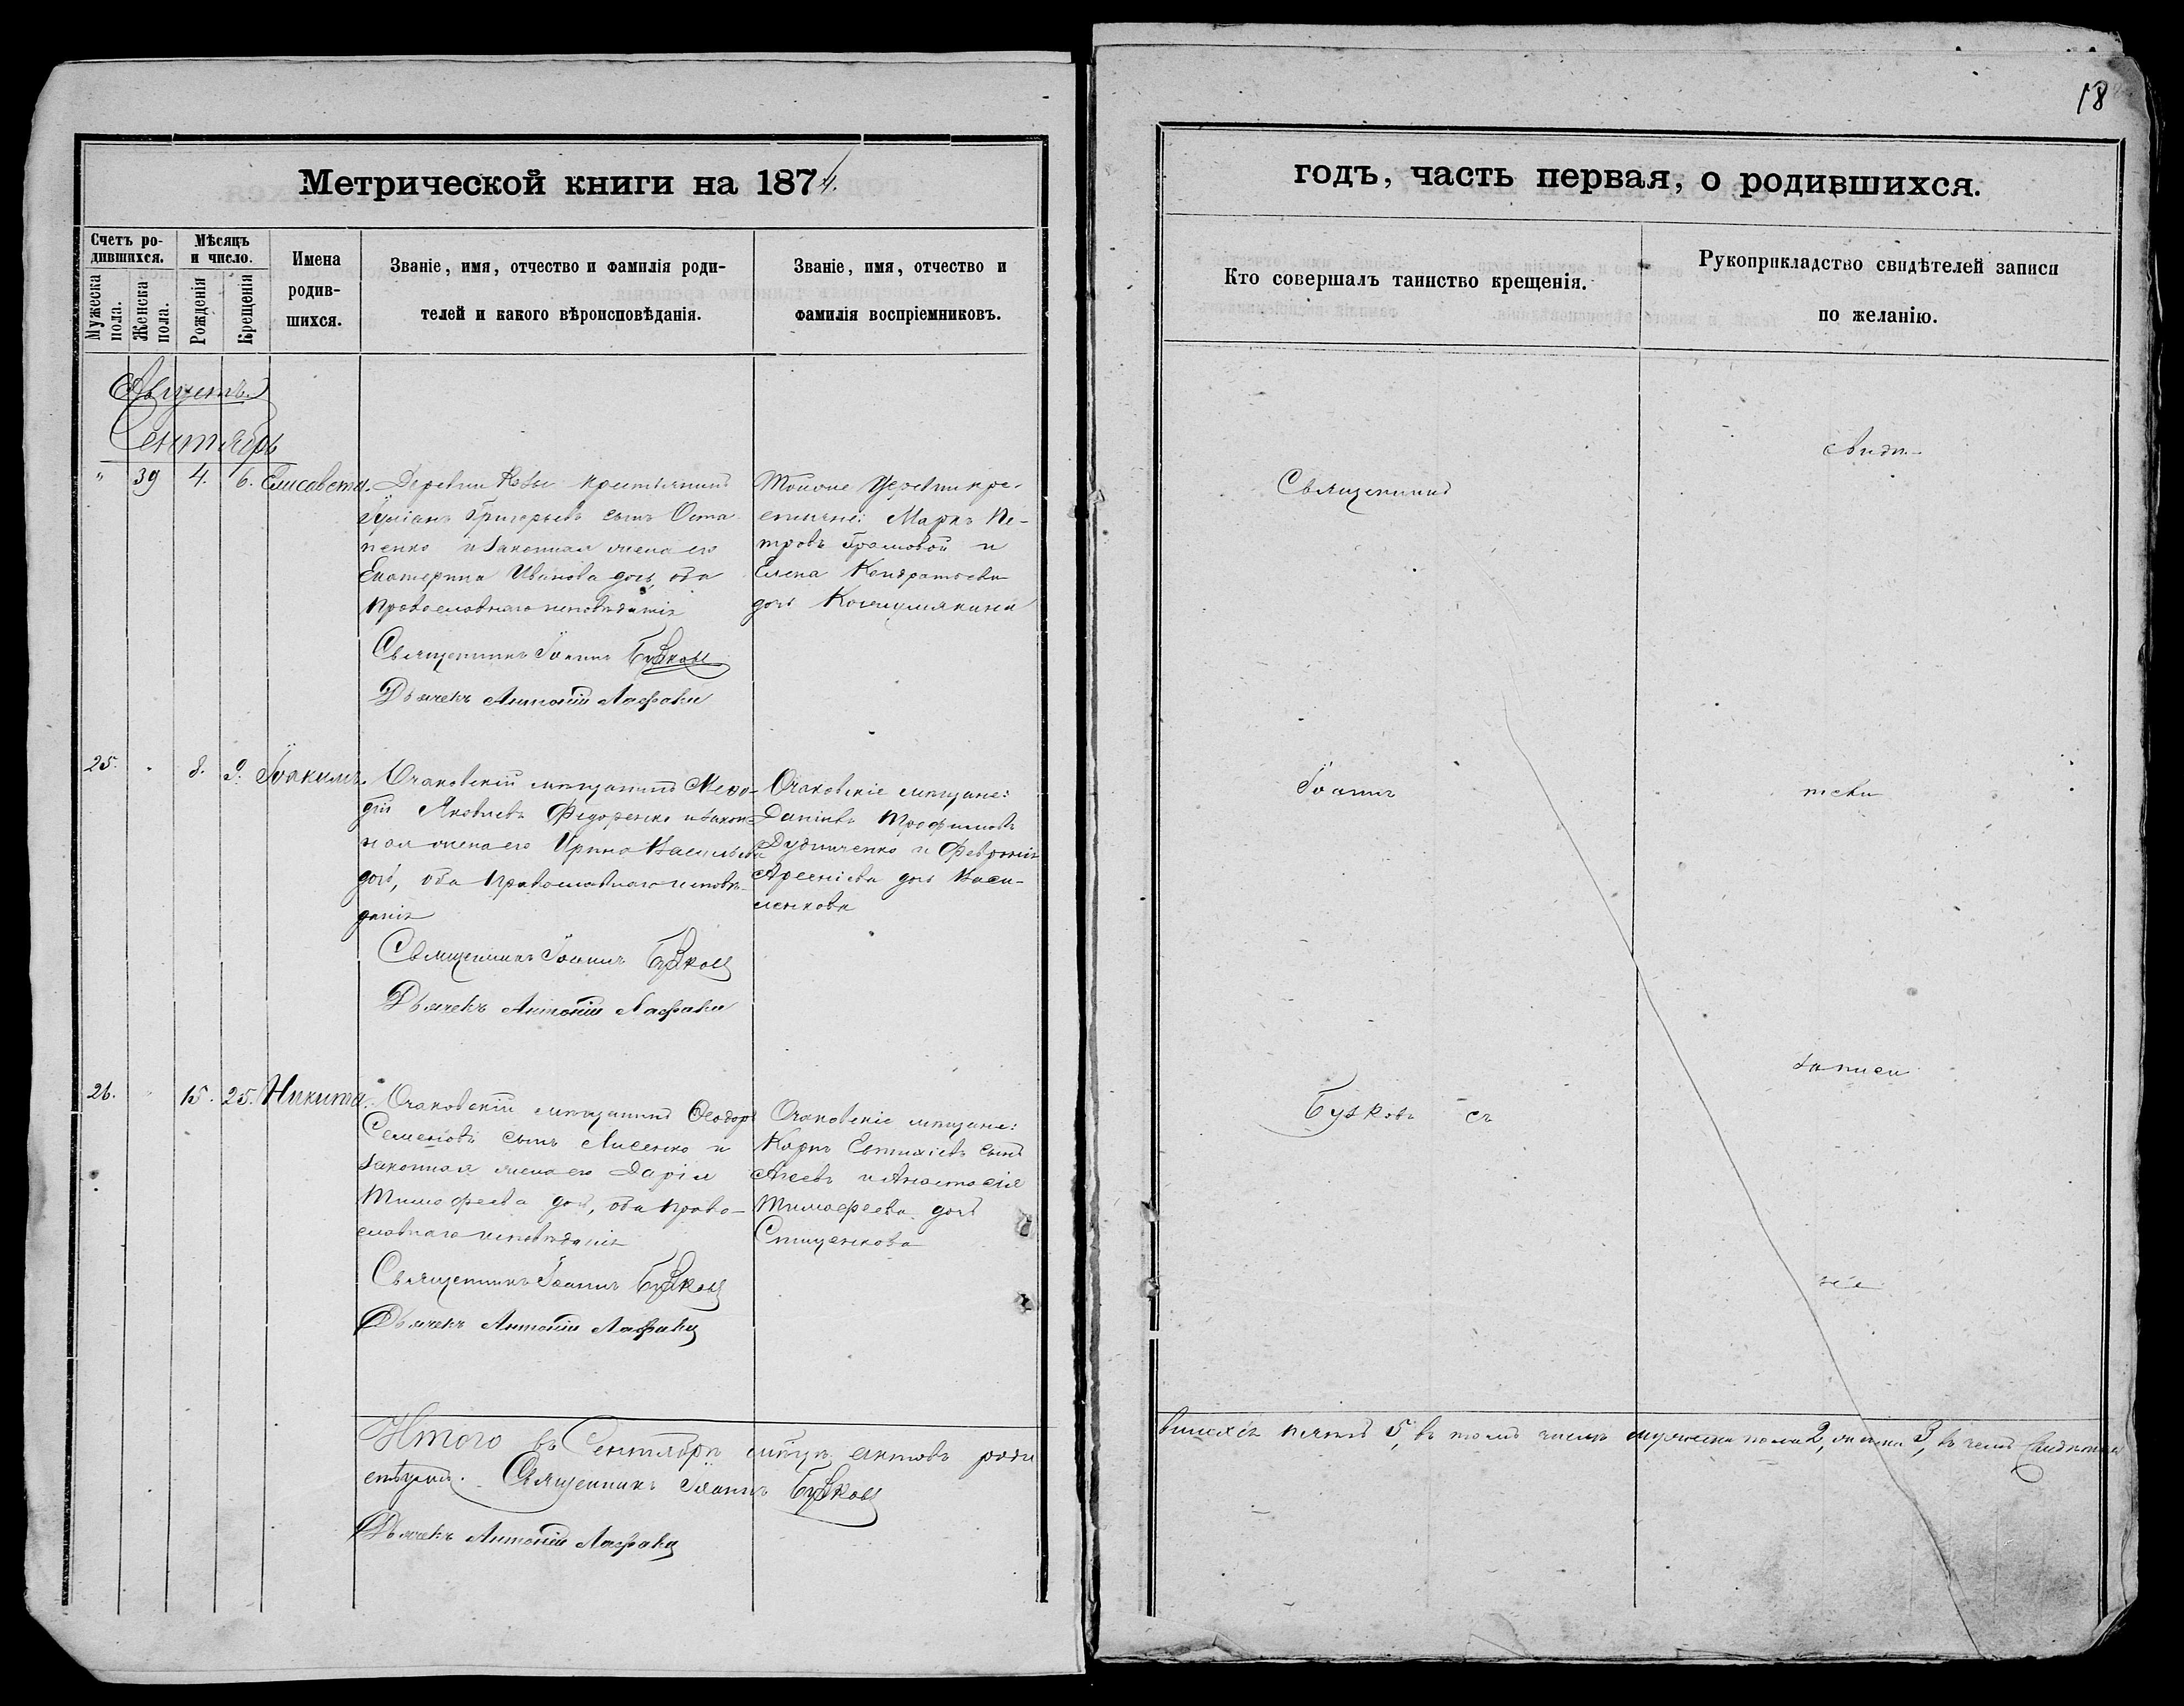 18
Метрической книги на 1874.
годъ, часть первая, о родившихся.
Счетъ ро-
дившихся.
Мужеска
пола.
Женска
пола.
Мѣсяцъ
и число.
Рожденія
Крещенія
Имена
родив-
шихся.
Званіе, имя, отчество и фамилія роди-
телей и какого вѣроисповѣданія.
Званіе, имя, отчество и
фамилія воспріемниковъ.
Кто совершалъ таинство крещенія.
Рукоприкладство свидѣтелей записи
по желанію.
Августъ
Сентябрь
" 39 4. 6. Елисавета.
Деревни крестьянинъ
Григорьевъ сынъ Оста
пенко и законная жена его
Екатерина Иванова дочь, оба
православнаго исповѣданія
Священникъ Іоаннъ Бузковъ
Дьячекъ Антоній
Тойже деревни кре-
стьяне: Марко Пе-
тровъ Громовой и
Елена Кондратьева
дочь
25. " 8. 9. Іоакимъ.
Очаковскій мѣщанинъ Меѳо-
дій Яковлевъ Федоренко и закон-
ная жена его Ирина Васильева
дочь, оба православнаго исповѣ-
данія
Священникъ Іоаннъ Бузковъ
Дьячекъ Антоній
Очаковскіе мѣщане:
Даніилъ Трофимовъ
Дудниченко и Февронія
Арсеніева дочь Васи-
ленкова
26. " 15. 25. Никита.
Очаковскій мѣщанинъ Ѳеодоръ
Семеновъ сынъ Лисенко и
законная жена его Дарія
Тимофеева дочь, оба право-
славнаго исповѣданія
Священникъ Іоаннъ Бузковъ
Дьячекъ Антоній
Очаковскіе мѣщане:
Карпъ Евтихіевъ сынъ
Агеевъ и Анастасія
Тимофеева дочь
Стиценкова
Итого въ Сентябрѣ мѣсяцѣ актовъ роди
вшихся пять 5, въ томъ числѣ мужеска пола 2, женска 3, въ чемъ свидѣтель
ствуемъ. Священникъ Іоаннъ Бузковъ
Дьячекъ Антоній
Священникъ
Іоаннъ
Бузковъ съ
Свидѣ-
тели
записи